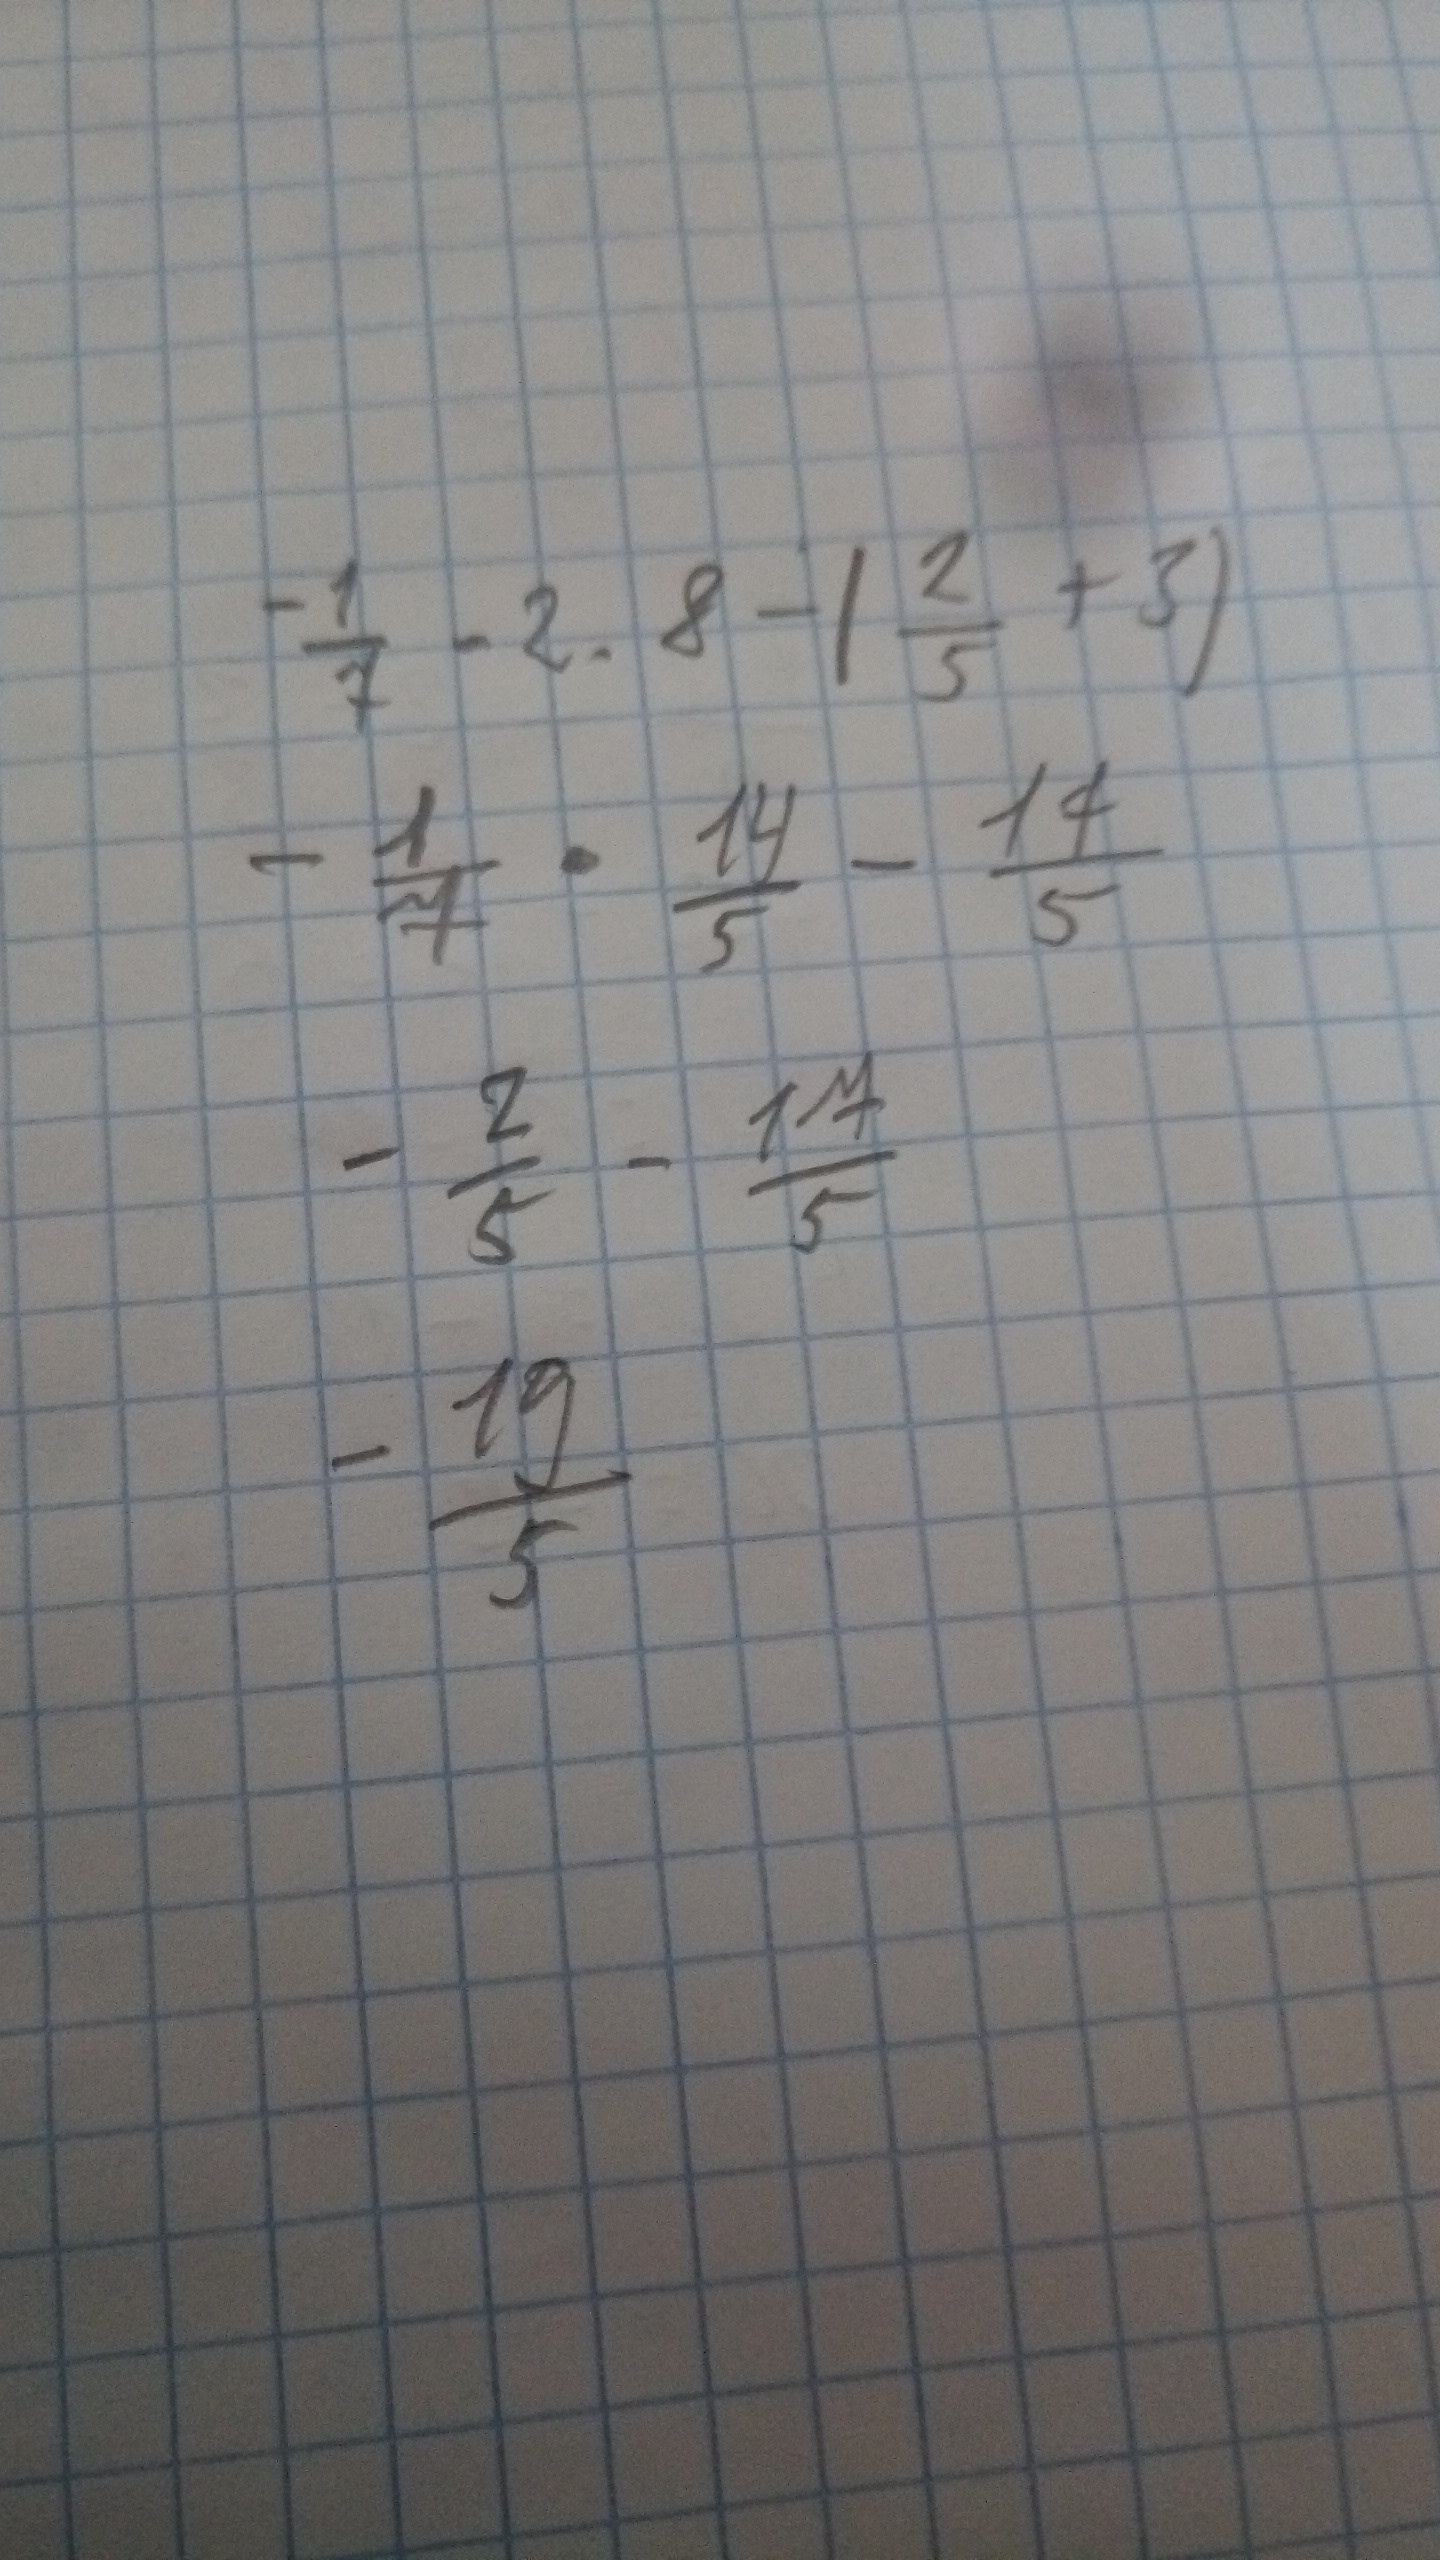 -1/7 - 2.8 - (2/5 + 3)
- 1/7 • 14/5 - 17/5
- 2/5 - 17/5
- 19/5